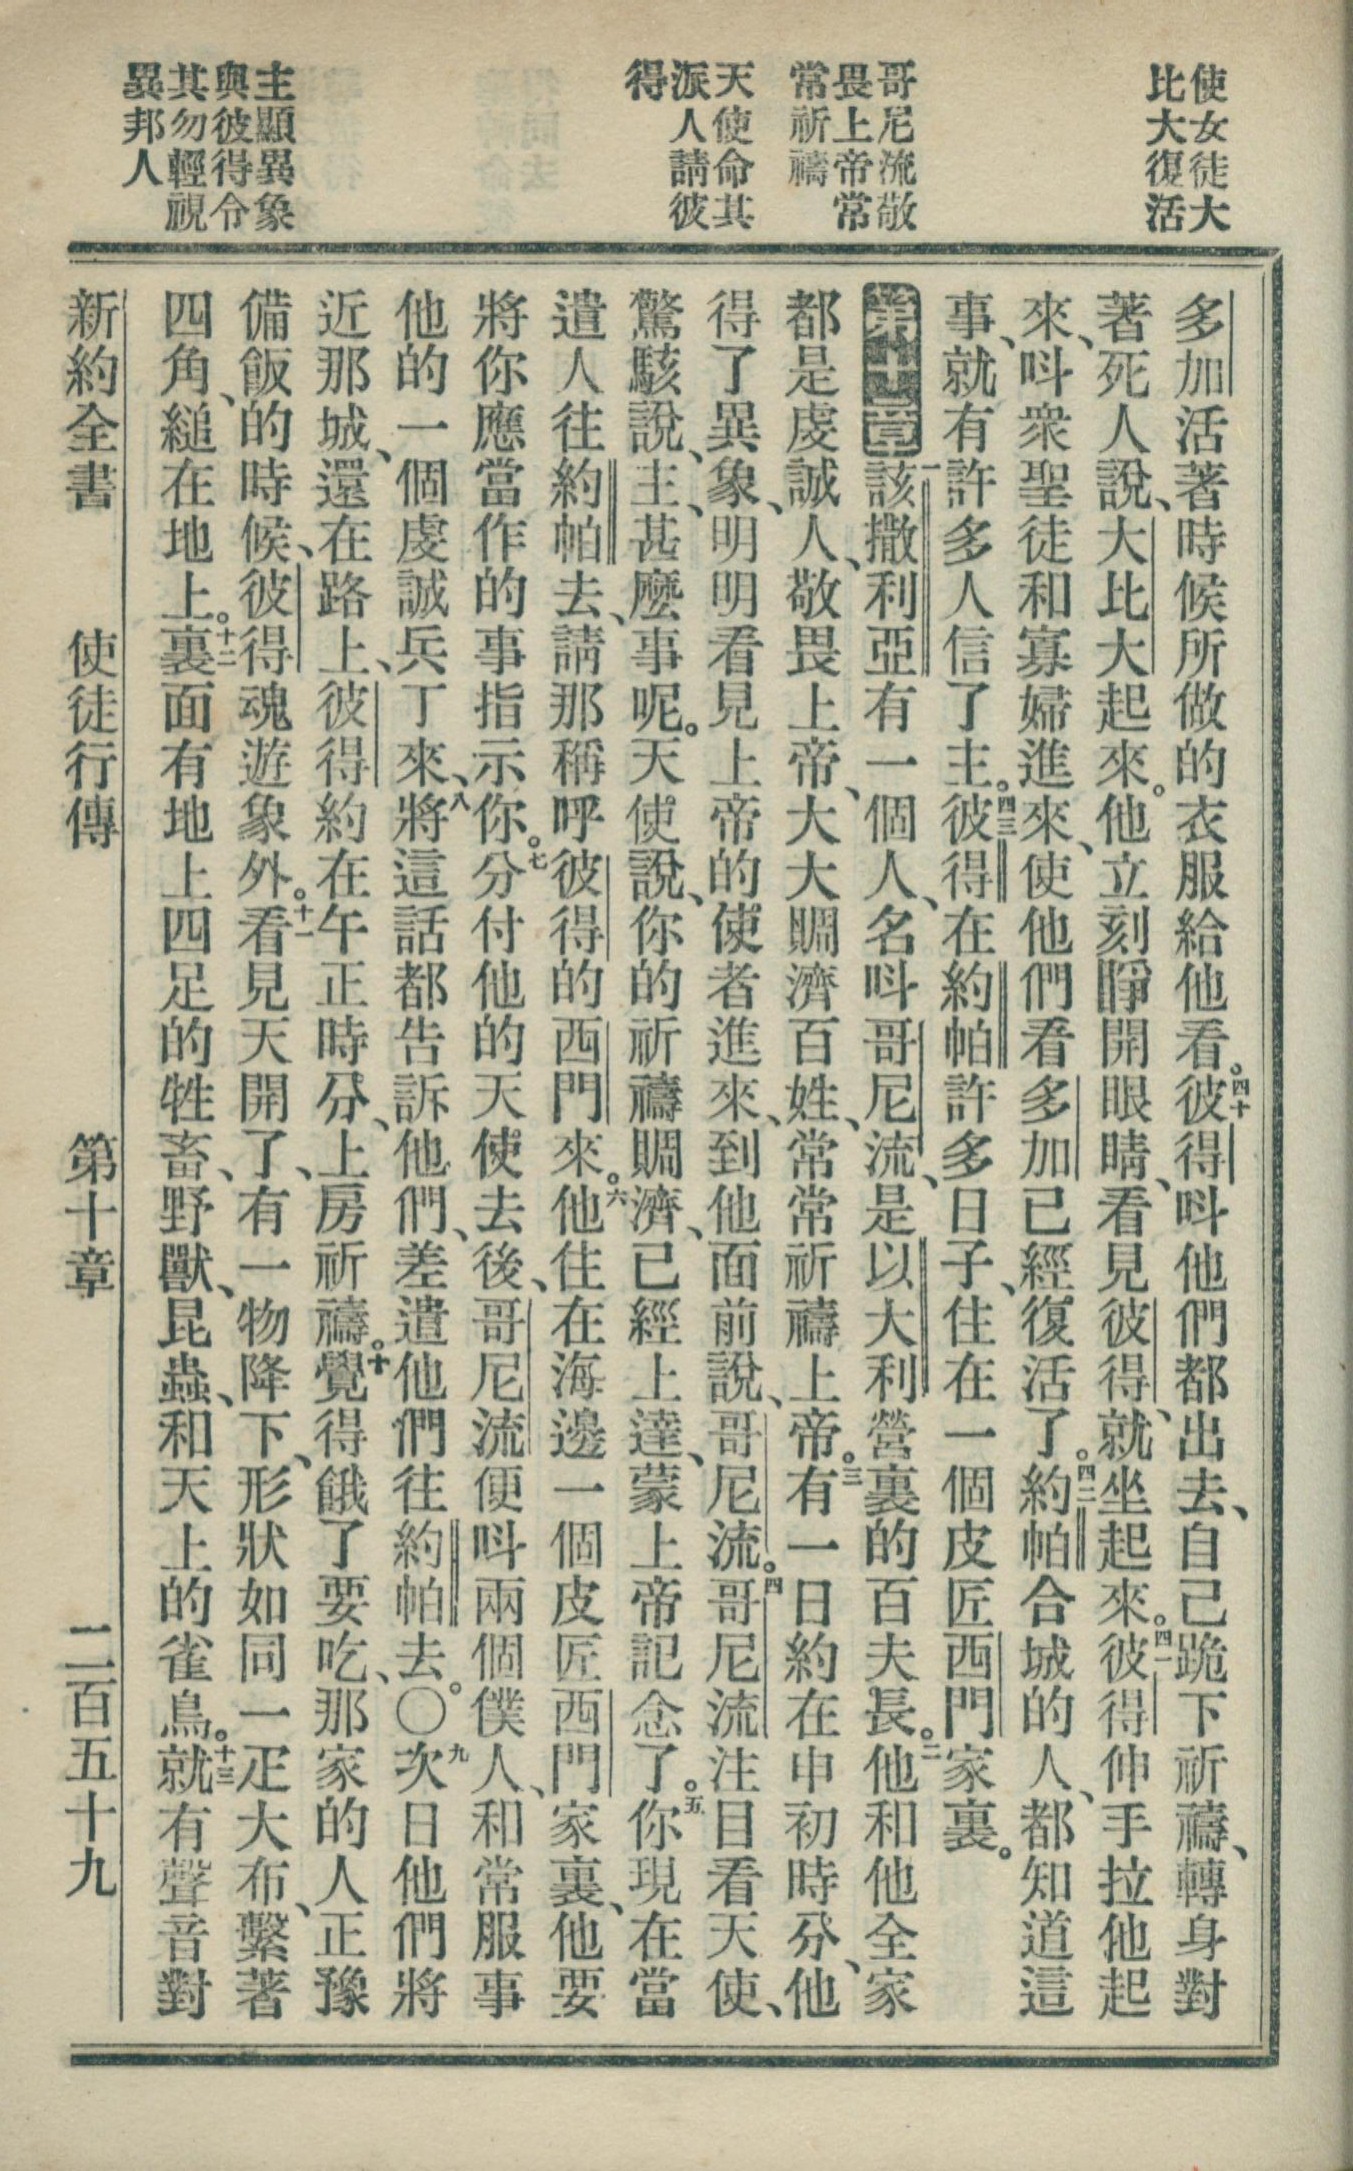 使女徒大
比大復活
哥尼流敬
畏上帝常
常祈禱
天使命其
派人請彼
得
主顯異象
與彼得令
其勿輕視
異邦人
多加活著時候所做的衣服給他看。四十彼得呌他們都出去、自己跪下祈禱、轉身對
著死人說、大比大起來。他立刻睜開眼睛、看見彼得、就坐起來。四一彼得伸手拉他起
來、呌衆聖徒和寡婦進來、使他們看多加已經復活了。四二約帕合城的人、都知道這
事、就有許多人信了主。四三彼得在約帕許多日子、住在一個皮匠西門家裏。
第十章一該撒利亞有一個人、名呌哥尼流、是以大利營裏的百夫長。二他和他全家
都是虔誠人、敬畏上帝、大大賙濟百姓、常常祈禱上帝。三有一日約在申初時分、他
得了異象、明明看見上帝的使者進來、到他面前說、哥尼流。四哥尼流注目看天使、
驚駭說、主、甚麼事呢。天使說、你的祈禱賙濟、已經上達、蒙上帝記念了。五你現在當
遣人往約帕去、請那稱呼彼得的西門來。六他住在海邊一個皮匠西門家裏、他要
將你應當作的事指示你。七分付他的天使去後、哥尼流便呌兩個僕人、和常服事
他的一個虔誠兵丁來、八將這話都告訴他們、差遣他們往約帕去。〇九次日他們將
近那城、還在路上、彼得約在午正時分、上房祈禱。十覺得餓了要吃、那家的人正豫
備飯的時候、彼得魂遊象外。十一看見天開了、有一物降下、形狀如同一疋大布、繫著
四角、縋在地上。十二裏面有地上四足的牲畜、野獸、昆蟲、和天上的雀鳥。十三就有聲音對
新約全書 使徒行傳 第十章 二百五十九